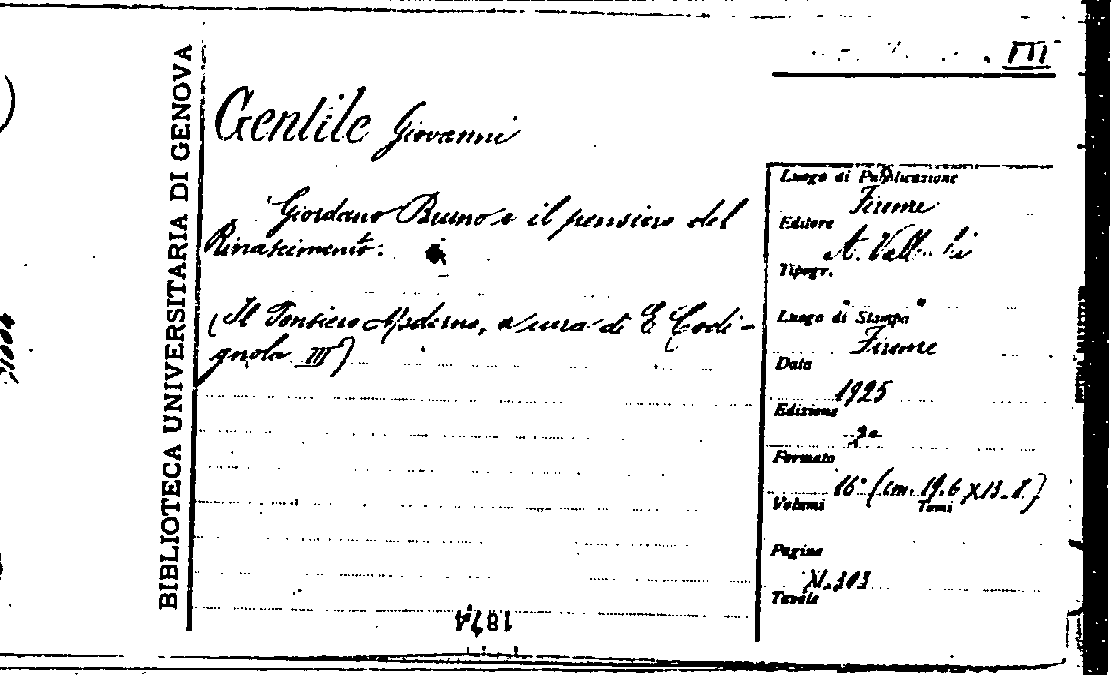 III
BIBLIOTECA UNIVERSITARIA DI GENOVA
Gentile Giovanni
Giordano Bruno e il pensiero del
Rinascimento.
(Il Pensiero Moderno, a cura di E. Codi-
gnola III)
Luogo di Pubblicazione
Firenze
Editore
A. Vallecchi
Tipogr.
" "
Luogo di Stampa
Firenze
Data
1925
Edizione
2a
Formato
16° (cm. 19.6 x 13.8)
Volumi Tomi
Pagine
XI.303
Tavole
1874